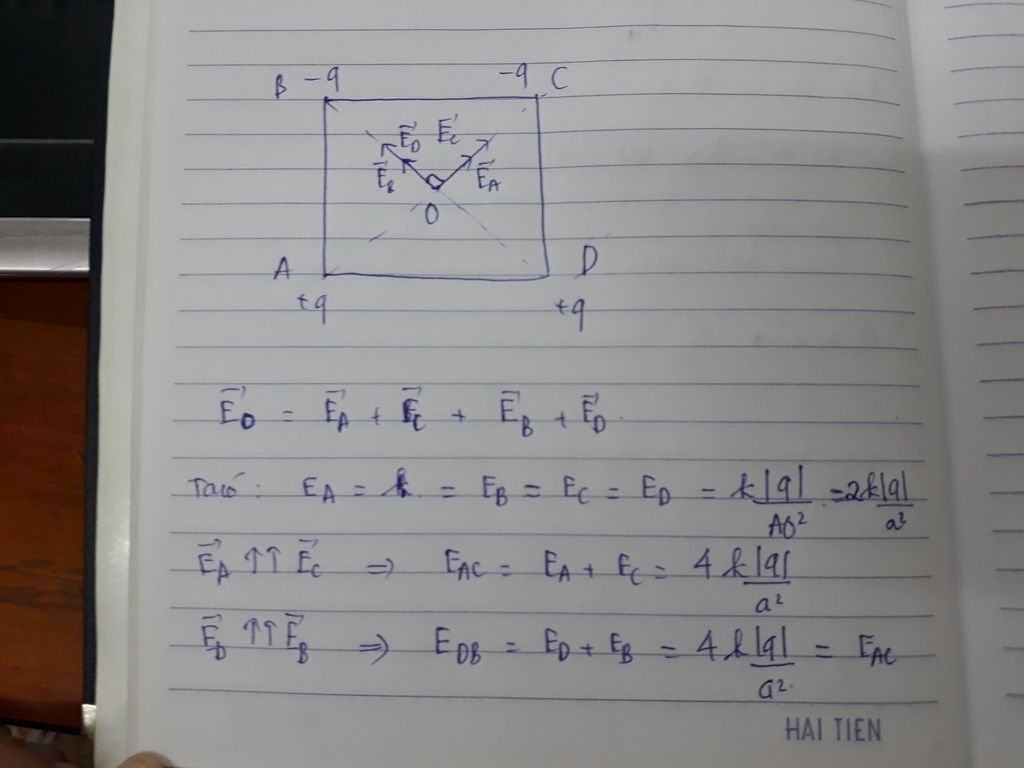 B -q -q C
E⃗D E⃗C
E⃗B E⃗A
O
A D
+q +q
E⃗O = E⃗A + E⃗C + E⃗B + E⃗D.
Ta có: EA = k = EB = EC = ED = k|q|/AO² = 2k|q|/a²
E⃗A ↑↑ E⃗C ⇒ EAC = EA + EC = 4k|q|/a²
E⃗D ↑↑ E⃗B ⇒ EDB = ED + EB = 4k|q|/a² = EAC
HAI TIEN